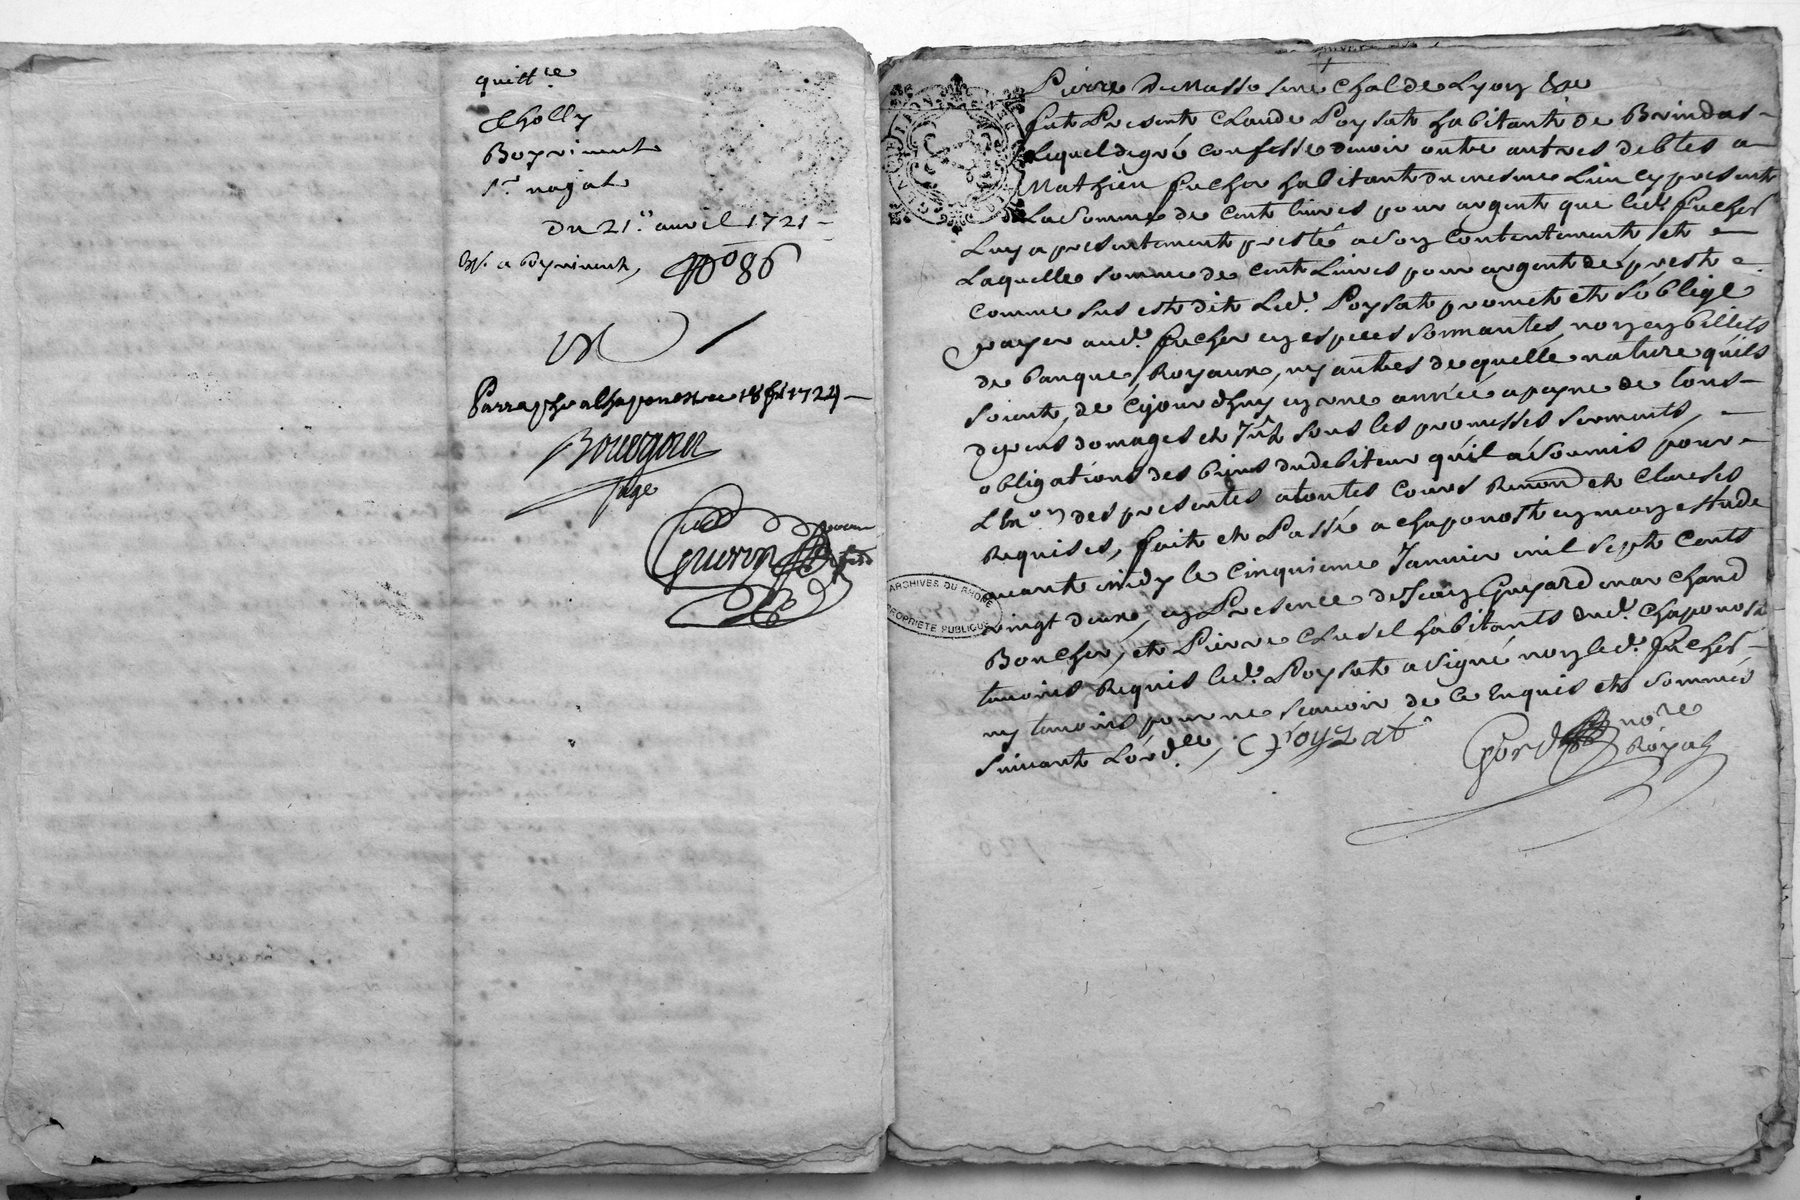 quitt.ce
Cholly
Boyrivent
Sr. najat
Du 21.e auvril 1721
a boyrivent, No 86
Parraphe a Chaponost ce 18 1724
Bourgeon
juge
Guerry
Pierre DuMasso Senechal de Lyon &ce
fut Present Claude Poysat habitant de Brindas
Lequel de gré confesse devoir outre autres debtes a
Mathieu fucher habitant du mesme Lieu cy present
La Somme de cent livres pour argent que led. fucher
Luy a presentement presté a son Contentement et
Laquelle somme de cent Livres pour argent de prest
Comme sus est dit Led. Poysat promet et s'oblige
payer aud. fucher en especes sonnantes, non en billets
de banque Royaux, ny autres de quelle nature qu'ils
soient, de Cejourdhuy en une année a payne de tous
depens domages et Jnt. sous les promesses serments,
obligations des biens du debiteur qu'il a soumis pour
L des presentes a toutes Cours Renon et Clauses
Requises, fait et Passé a chaponost en mon estude
avant midy le Cinquieme Janvier mil Sept Cents
vingt deux, en Presence de Jean Guyard marchand
Boucher, et Pierre Clusel habitants dud. Chaponost
temoins Requis led. Poysat a signé non led. fucher
ny temoins pour ne scavoir de Ce Enquis et sommés
Suivant L'ord.ce, C Poyzat
nore
Royal
ARCHIVES DU RHONE
PROPRIETE PUBLIQUE